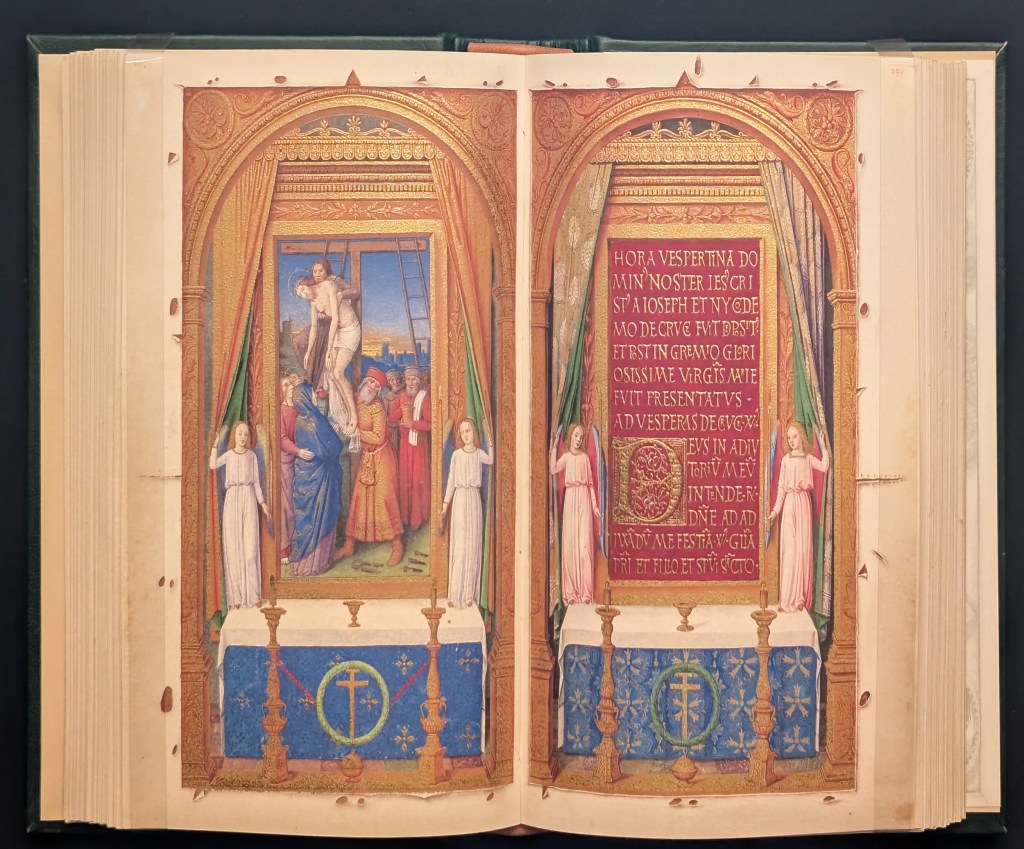 HORA VESPERTINA DO
MIN⁹ NOSTER IES⁹ CRI
ST⁹ A IOSEPH ET NYCODE
MO DE CRVCE FVIT DPSIT⁹
ET PST IN GREMIO GLORI
OSISSIME VIRGIS MAIE
FVIT PRESENTATVS ·
AD VESPERAS DE CRVC
DEVS IN ADIV
TORIŪ MEŪ
INTENDE · R ·
DÑE AD AD
IVVĀDŪ ME FESTĪA GLĪA
PRI ET FILIO ET SCTO ·